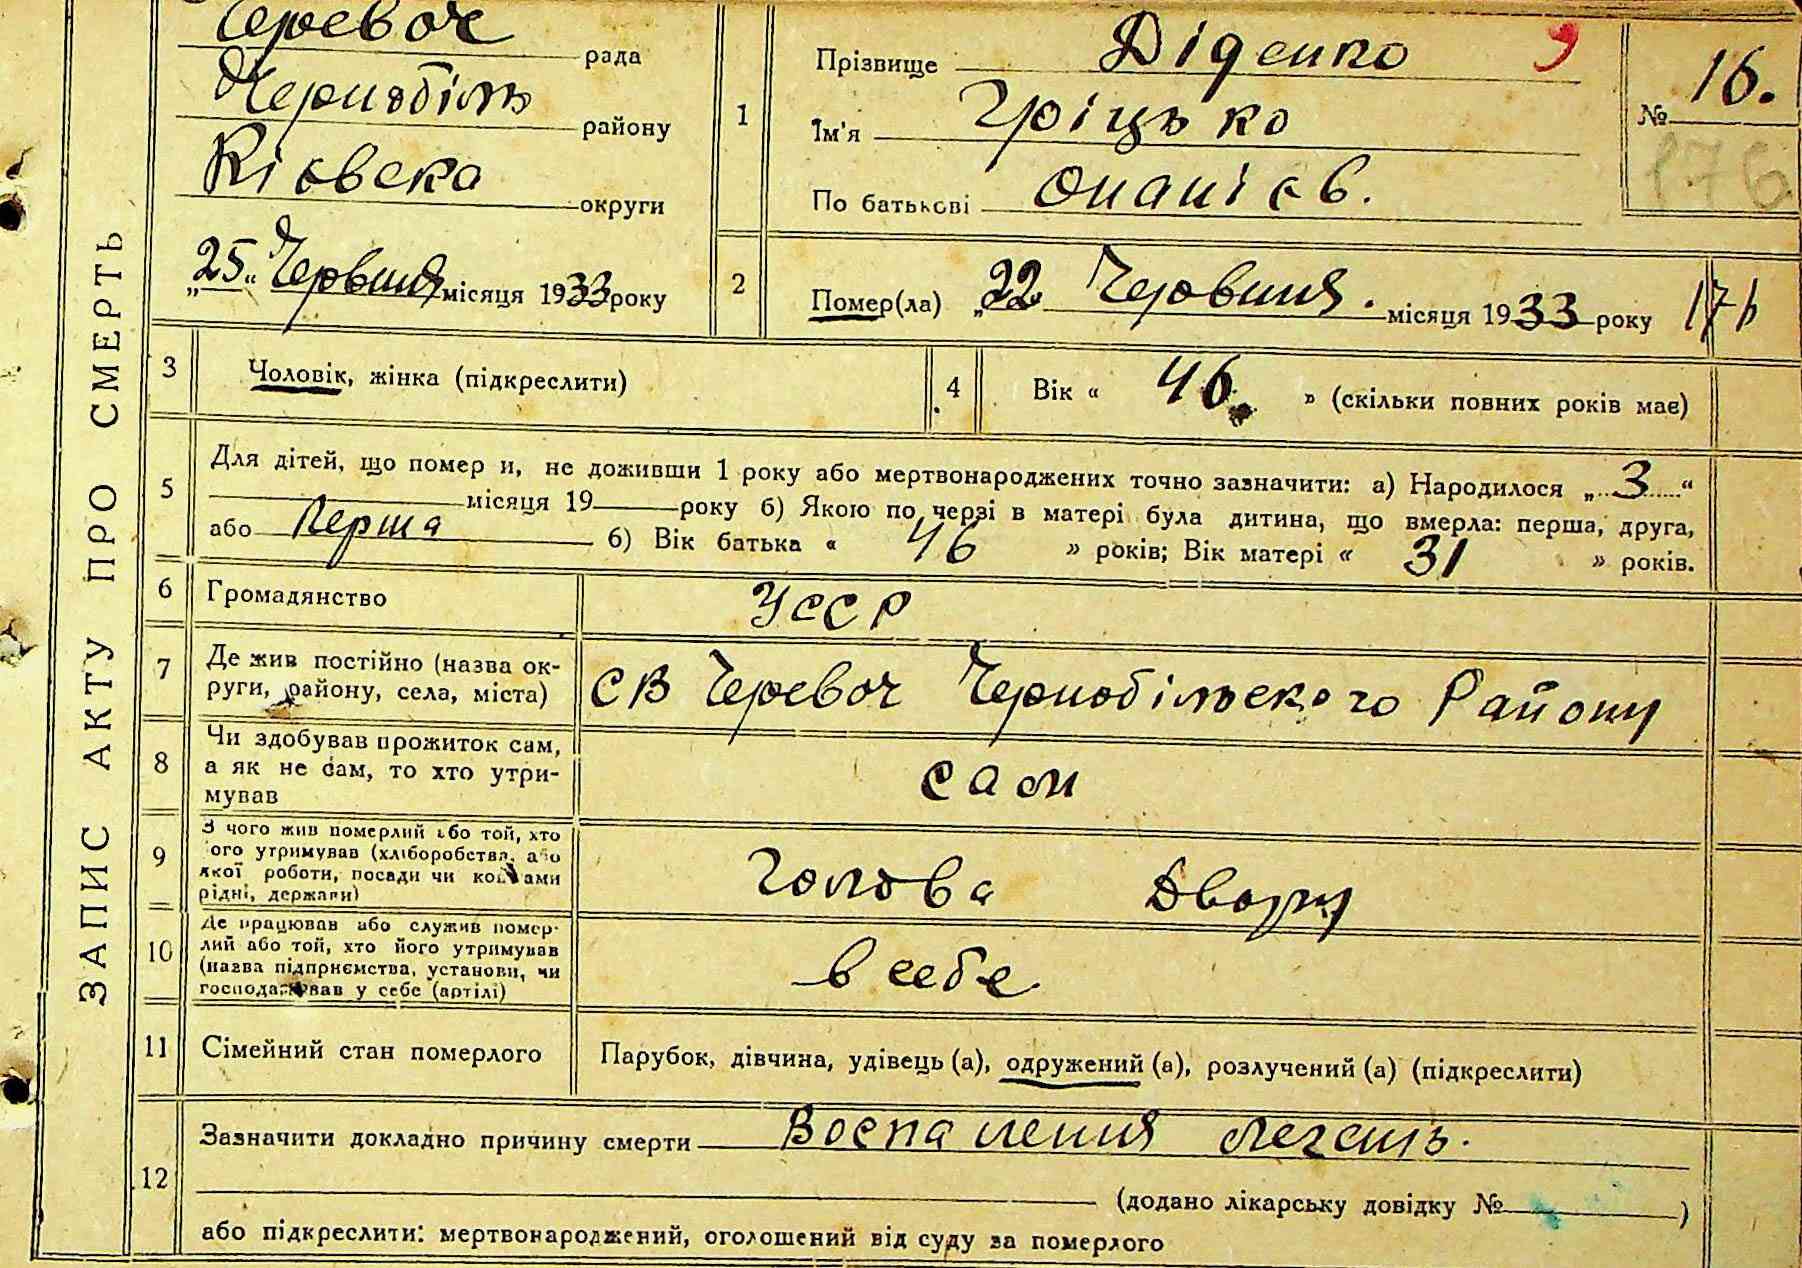 ЗАПИС АКТУ ПРО СМЕРТЬ
Черевач рада
Чернобіль району
Кіовска округи
„25“ Червния місяця 1933 року
1 Прізвище Діденко 9
Ім'я Гріцько
По батькові Онанієв.
№ 16.
176
2 Помер(ла) „22 Червния. місяця 1933 року
3 Чоловік, жінка (підкреслити)
4 Вік « 46. » (скільки повних років має)
5 Для дітей, що помер и, не доживши 1 року або мертвонароджених точно зазначити: а) Народилося „ 3 “
місяця 19 року б) Якою по черзі в матері була дитина, що вмерла: перша, друга,
або Перша б) Вік батька « 46 » років; Вік матері « 31 » років.
6 Громадянство УССР
7 Де жив постійно (назва ок-
руги, району, села, міста) СВ Черевач Чернобільского Району
8 Чи здобував прожиток сам,
а як не сам, то хто утри-
мував сам
9 З чого жив померлий або той, хто
ого утримував (хліборобства, або
якої роботи, посади чи коштами
рідні, держави) Голова Двору
10 Де працював або служив помер-
лий або той, хто його утримував
(назва підприємства, установи, чи
господарював у себе (артілі) в себе
11 Сімейний стан померлого Парубок, дівчина, удівець (а), одружений (а), розлучений (а) (підкреслити)
12 Зазначити докладно причину смерти Воспаления легень.
(додано лікарську довідку № )
або підкреслити: мертвонароджений, оголошений від суду за померлого